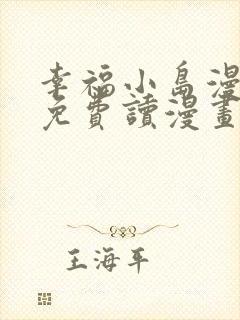 幸福小島漫
免費讀漫畫
王海平